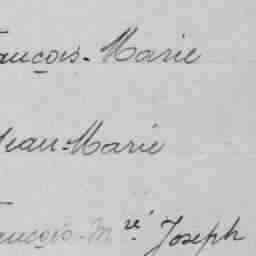 ançois-Marie
Jean-Marie
ançois-M ré Joseph